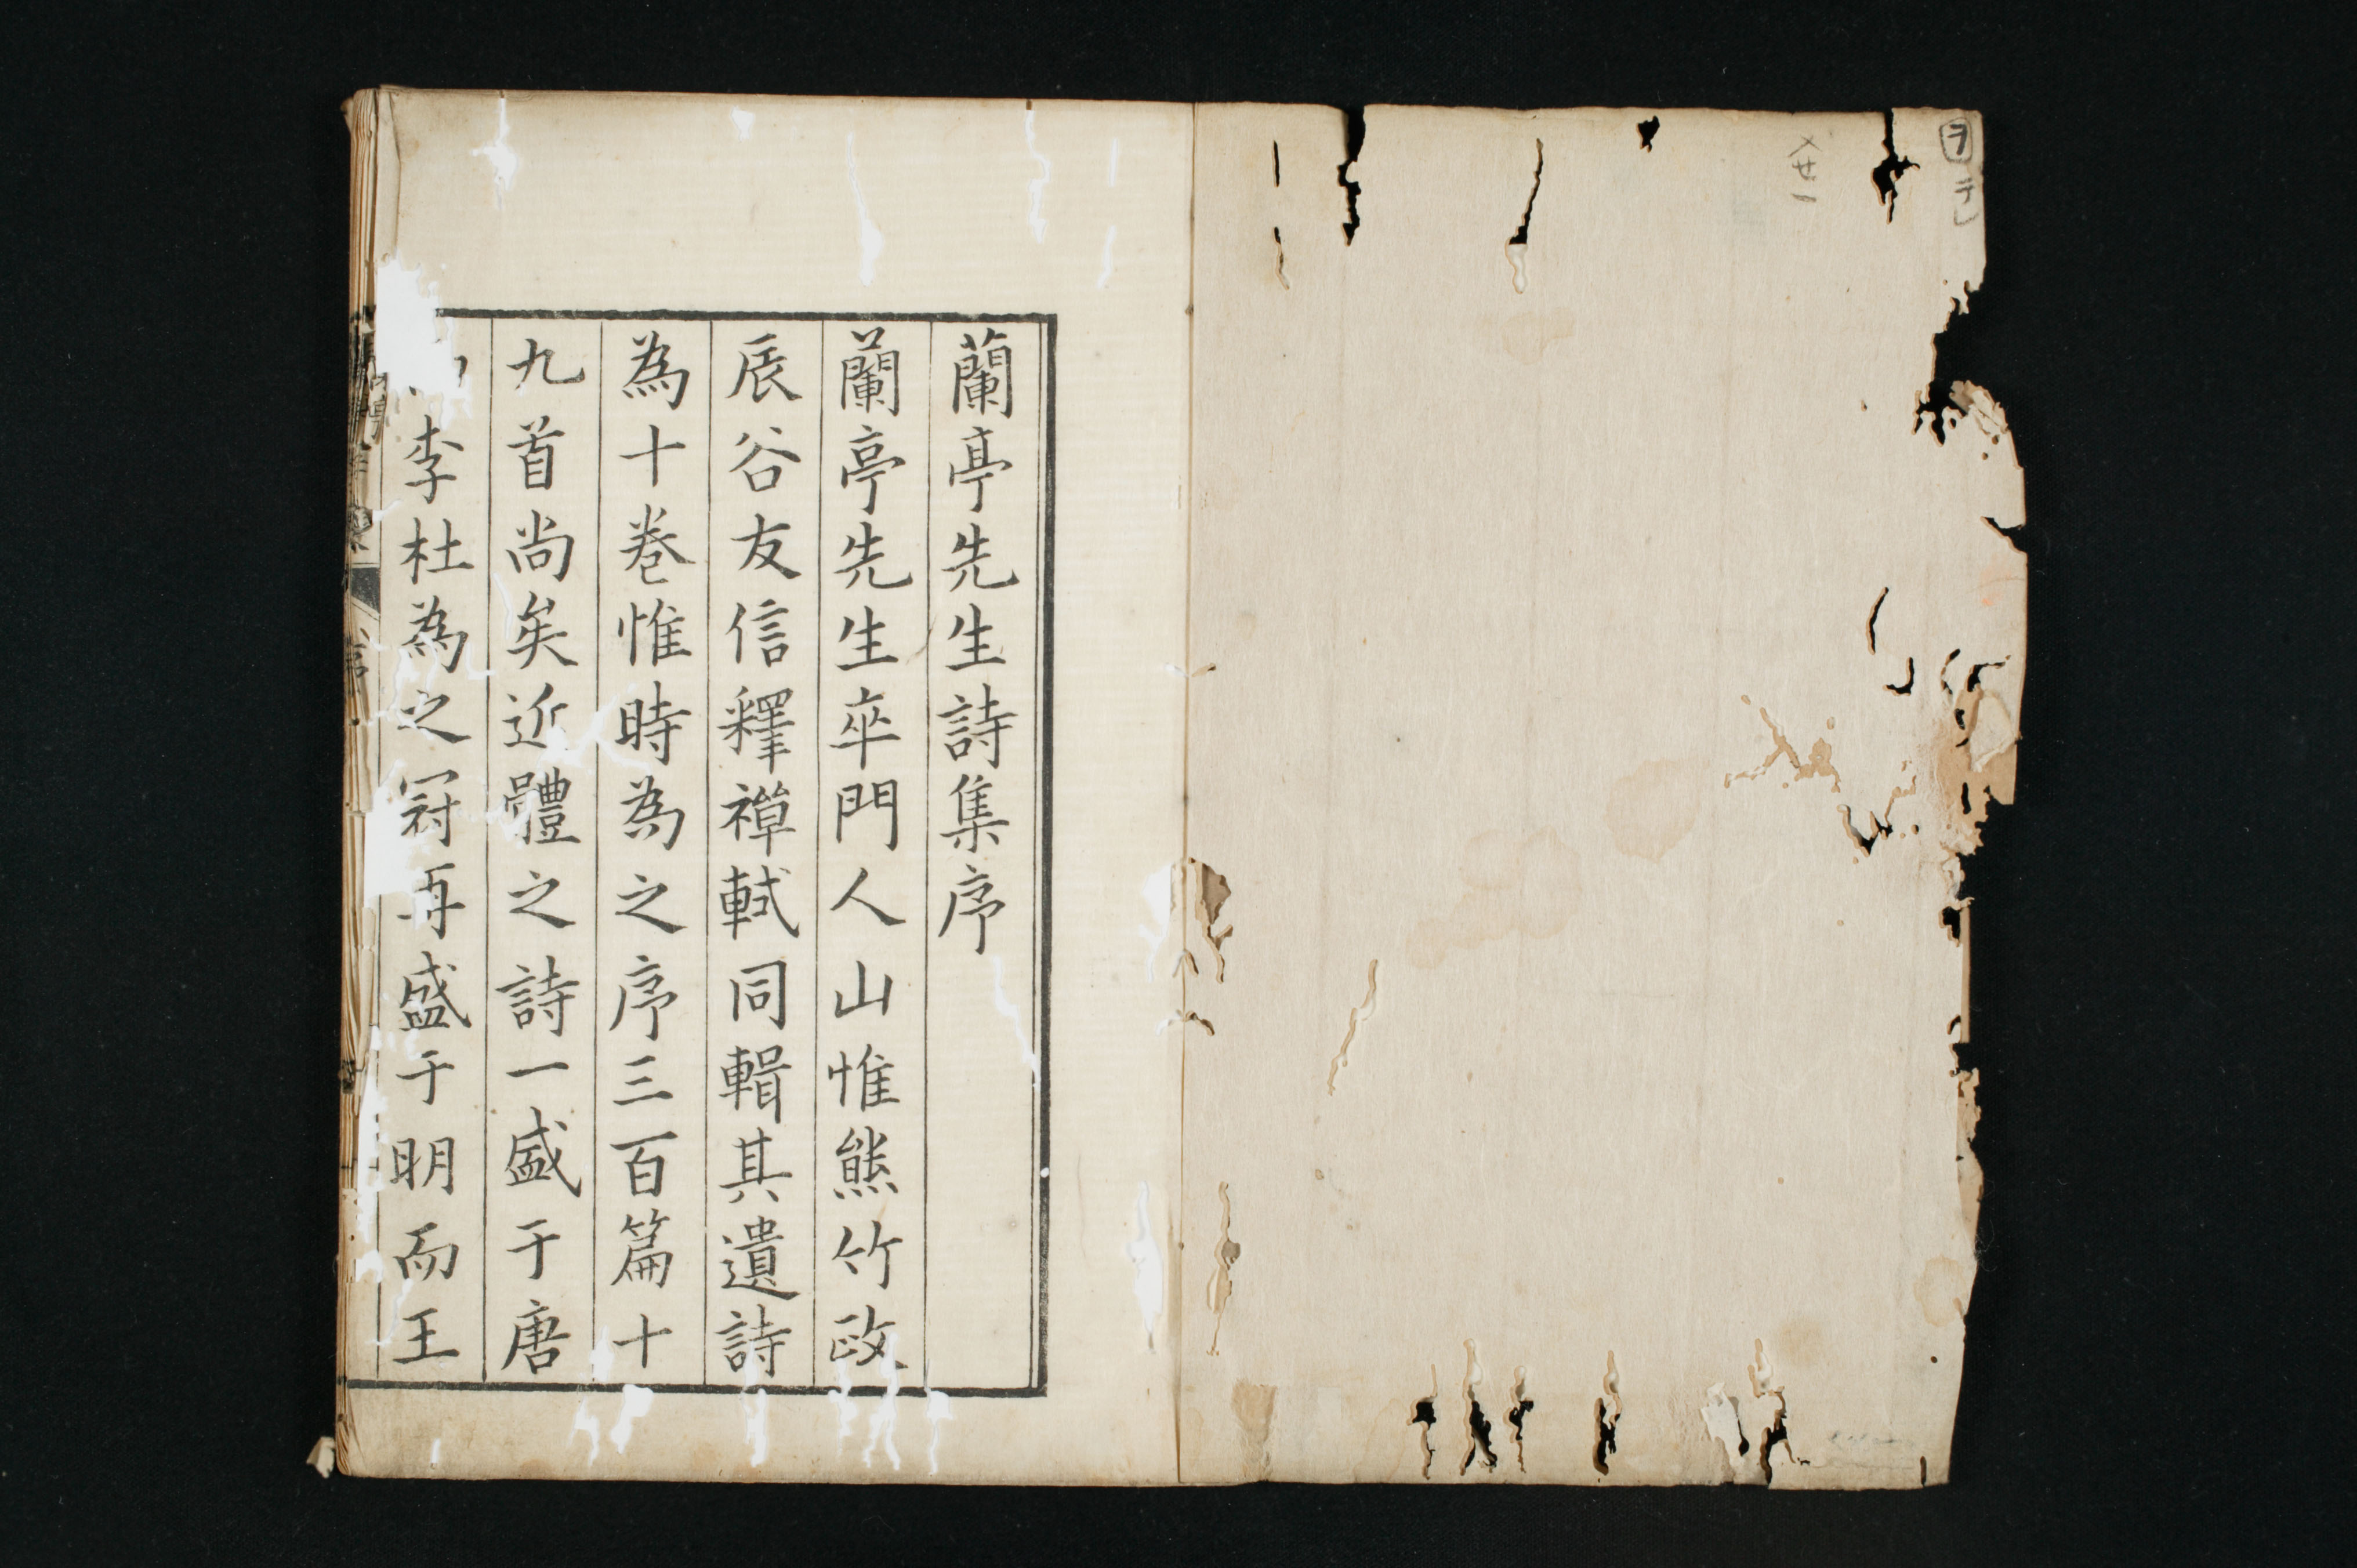 ヲ
蘭亭先生詩集序
蘭亭先生卒門人山惟熊竹政
辰谷友信釋襌軾同輯其遺詩
為十卷惟時為之序三百篇十
九首尚矣近體之詩一盛于唐
李杜為之冠再盛于明而王